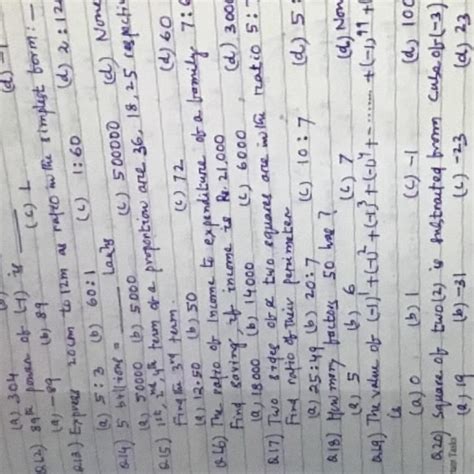 (a) 304
(d) -1
Q12) 89th power of (-1) is ____
(a) -89 (b) 89 (c) 1
Q13) Express 20cm to 12m as ratio in the simplest form:-
(a) 5:3 (b) 60:1 (c) 1:60 (d) 2:12
Q14) 5 billions = ____ lakhs
(a) 50000 (b) 5000 (c) 500000 (d) None
Q15) 1st, 2nd, 4th term of a proportion are 36, 18, 25 respecti
Find the 3rd term.
(a) 12.50 (b) 50 (c) 72 (d) 60
Q16) The ratio of Income to expenditure of a family 7:6
Find saving if income is Rs. 21,000
(a) 18000 (b) 14000 (c) 6000 (d) 3000
Q17) Two sides of two squares are in the ratio 5:7
Find ratio of their perimeter
(a) 25:49 (b) 20:7 (c) 10:7 (d) 5:
Q18) How many factors 50 has?
(a) 5 (b) 6 (c) 7 (d) Non
Q19) The value of (-1)1+(-1)2+(-1)3+(-1)4+-......+(-1)99+(
is
(a) 0 (b) 1 (c) -1 (d) 100
Q20) Square of two (2) is subtracted from cube of (-3)
(a) 19 (b) -31 (c) -23 (d) 23